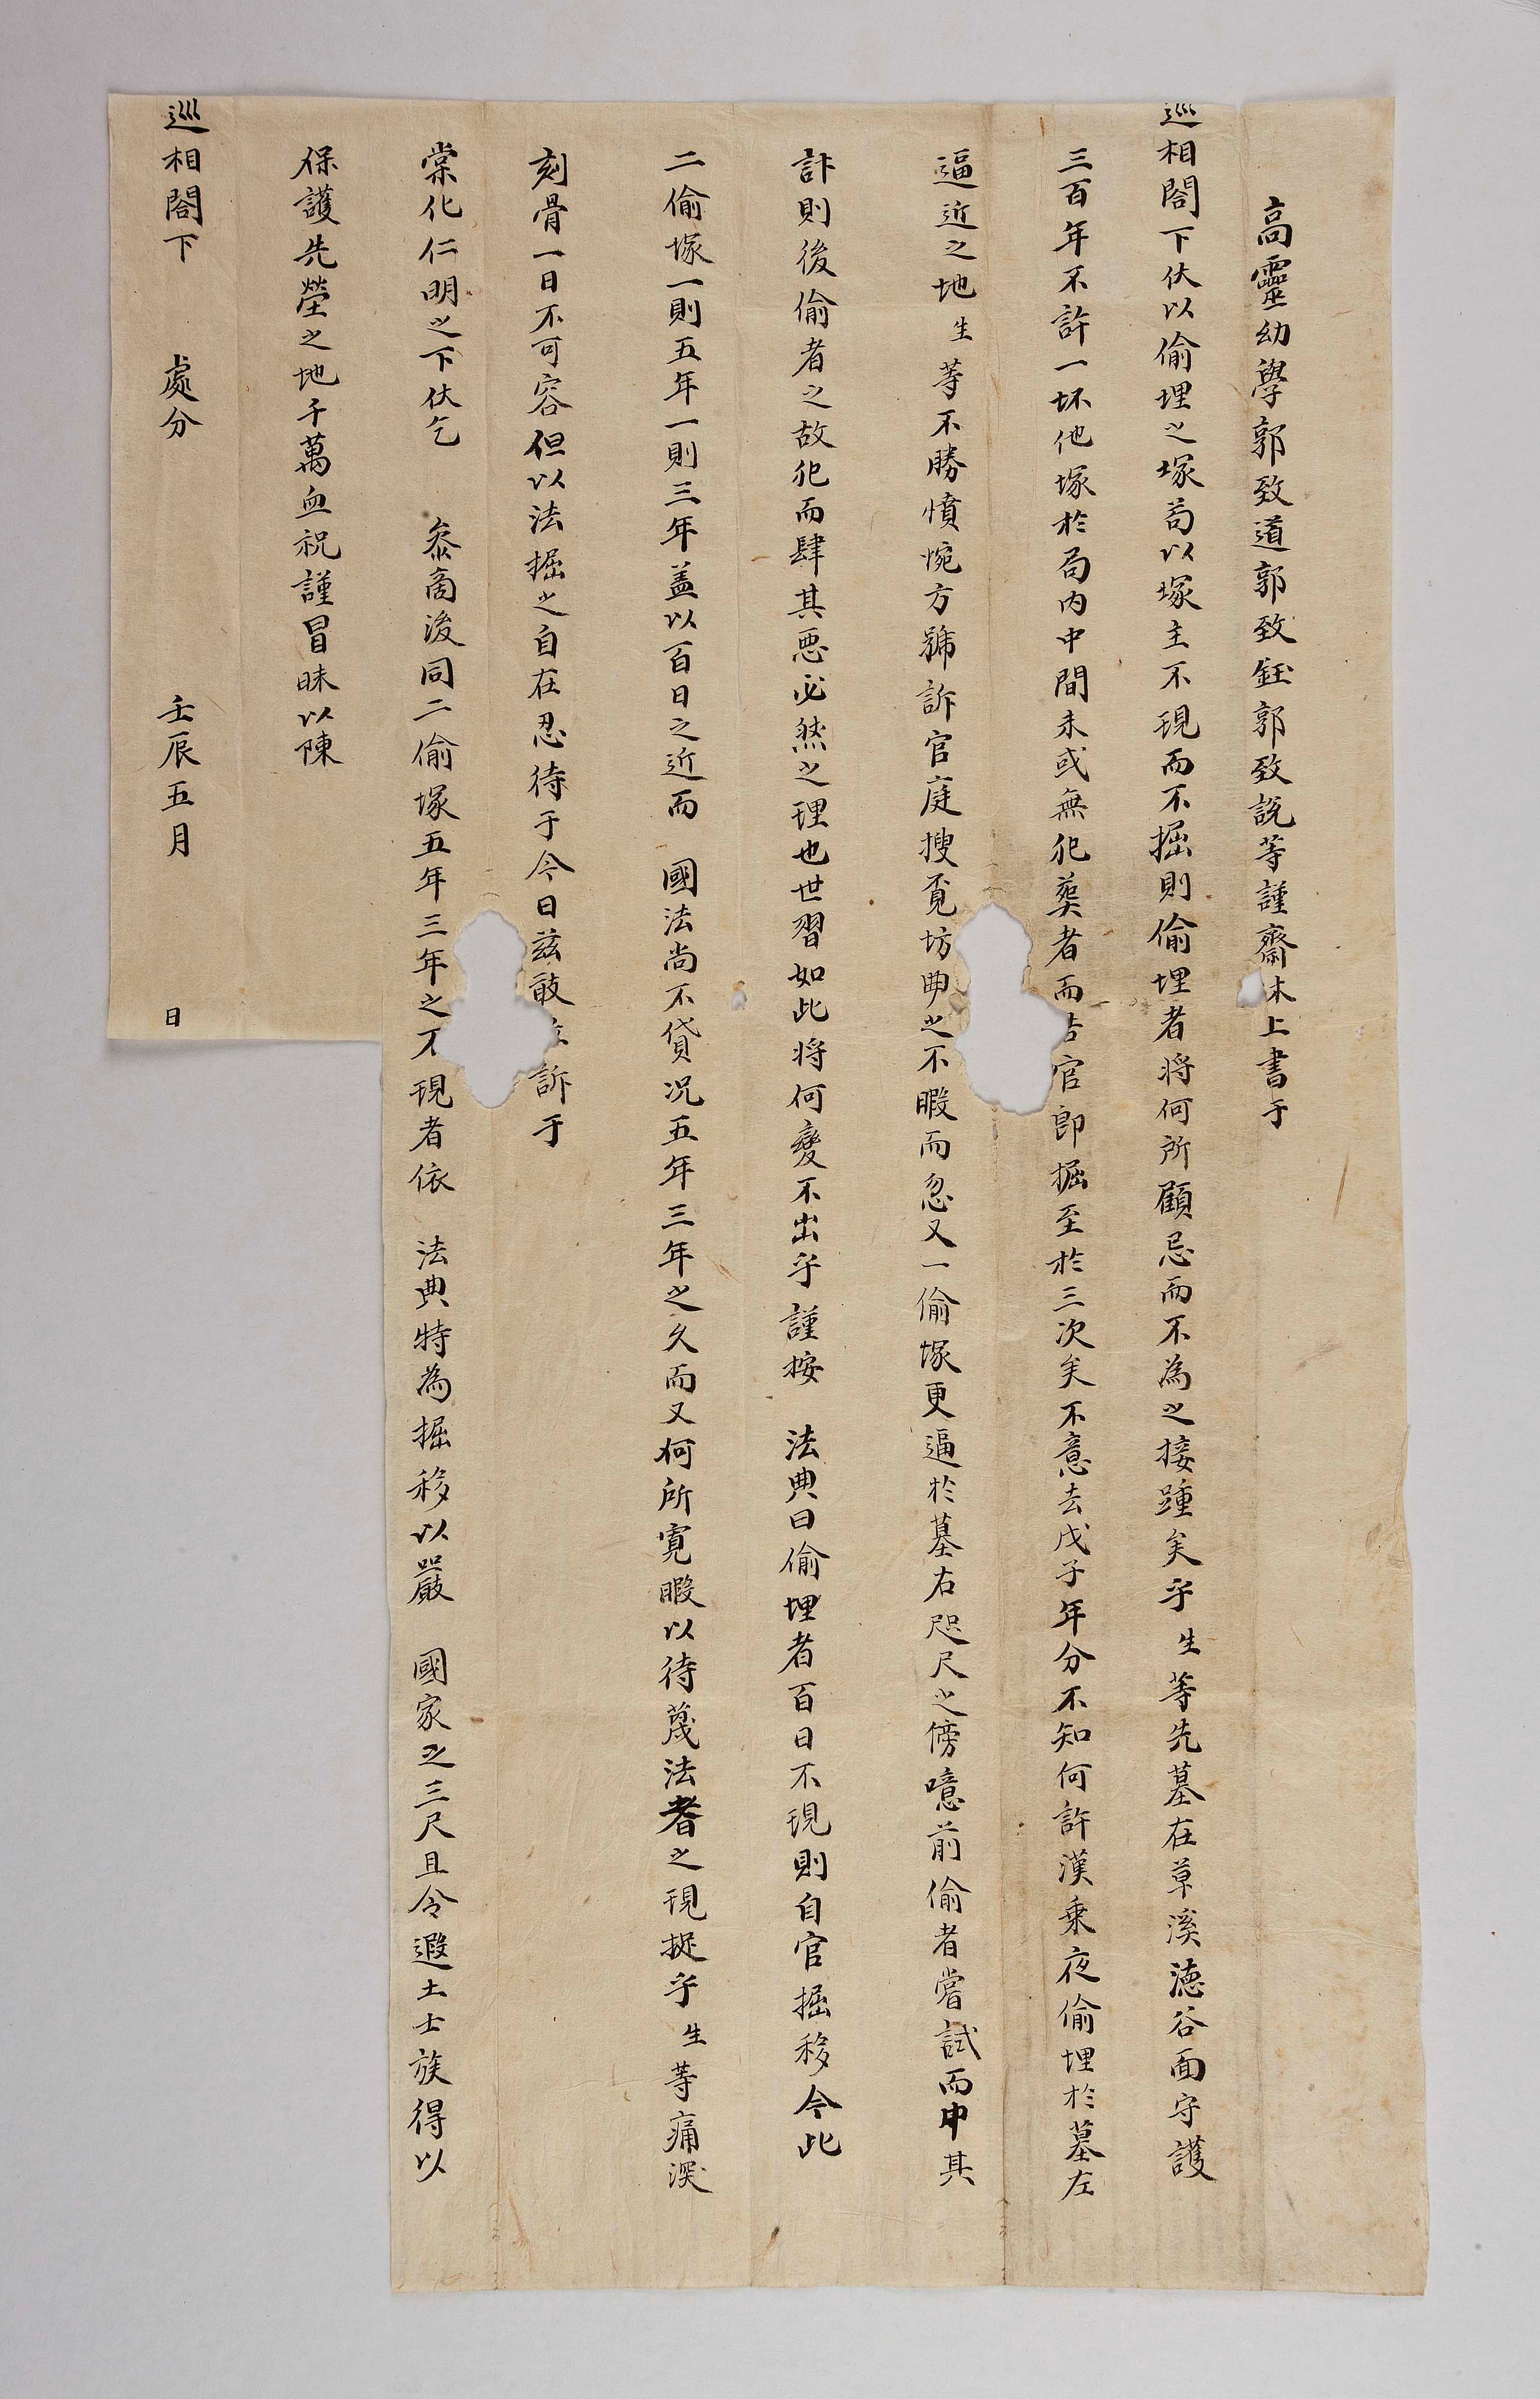 高靈幼學郭致道郭致鈺郭致説等謹齋沐上書于
巡相閤下伏以偷埋之塚苟以塚主不現而不掘則偷埋者將何所顧忌而不為之接踵矣乎生等先墓在草溪德谷面守護
三百年不許一坏他塚於局內中間未或無犯葬者而告官即掘至於三次矣不意去戊子年分不知何許漢乘夜偷埋於墓左
逼近之地生等不勝憤惋方號訴官庭搜覓坊曲之不暇而忽又一偷塚更逼於墓右咫尺之傍噫前偷者嘗試而中其
計則後偷者之故犯而肆其惡必然之理也世習如此將何變不出乎謹按 法典曰偷埋者百日不現則自官掘移今此
二偷塚一則五年一則三年盖以百日之近而 國法尚不貸况五年三年之久而又何所寬暇以待蔑法者之現捉乎生等痛深
刻骨一日不可容但以法掘之自在忍待于今日茲敢 訴于
棠化仁明之下伏乞 叅商後同二偷塚五年三年之不現者依 法典特為掘移以嚴 國家之三尺且令遐土士族得以
保護先塋之地千萬血祝謹冒昧以陳
巡相閤下 處分 壬辰五月 日